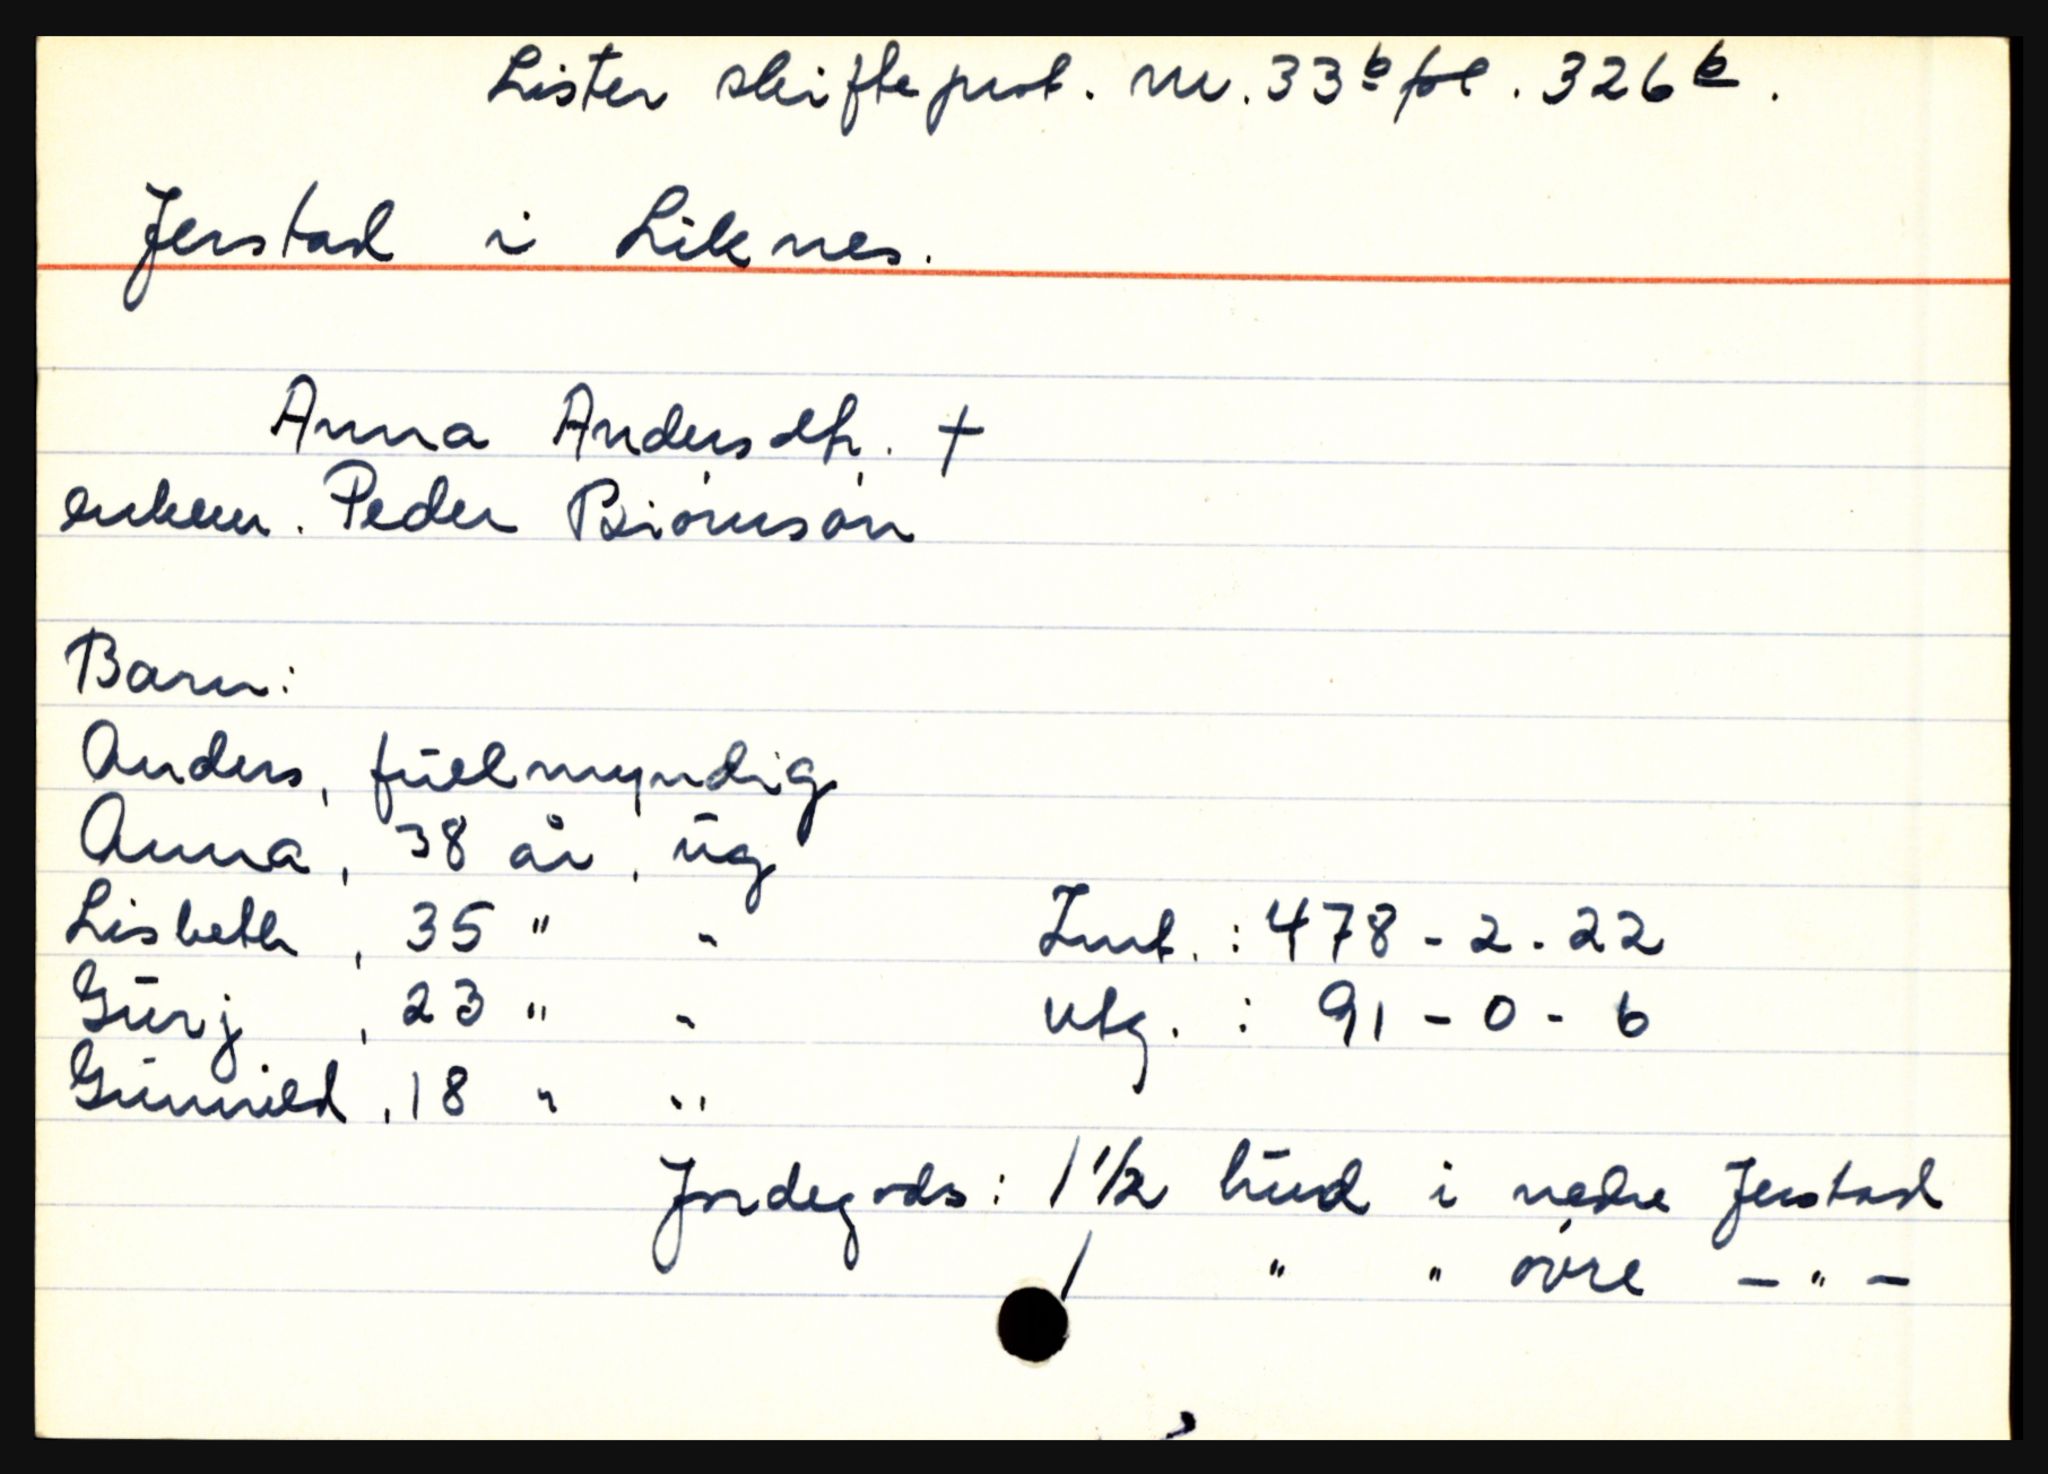 Lister skifteprot. nr. 33b fol. 326b.
Jerstad i Liknes.
Anna Andersdtr. †
enkem. Peder Biørnsøn
Barn:
Anders, fullmyndig
Anna, 38 år, ug
Lisbeth, 35 " "
Gurj, 23 " "
Gunnild, 18 " "
Innt.: 478 - 2 - 22
Utg. : 91 - 0 - 6
Jordegods: 1 1/2 hud i nedre Jerstad
1 " " øvre - " -